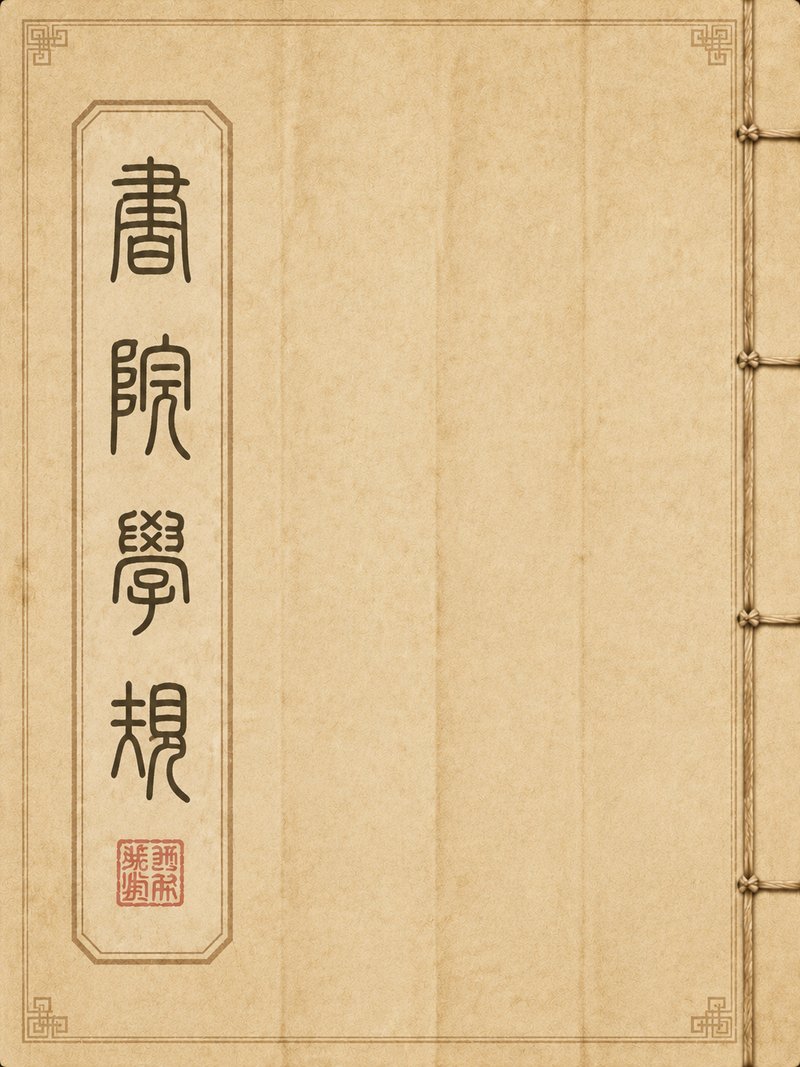 書院學規